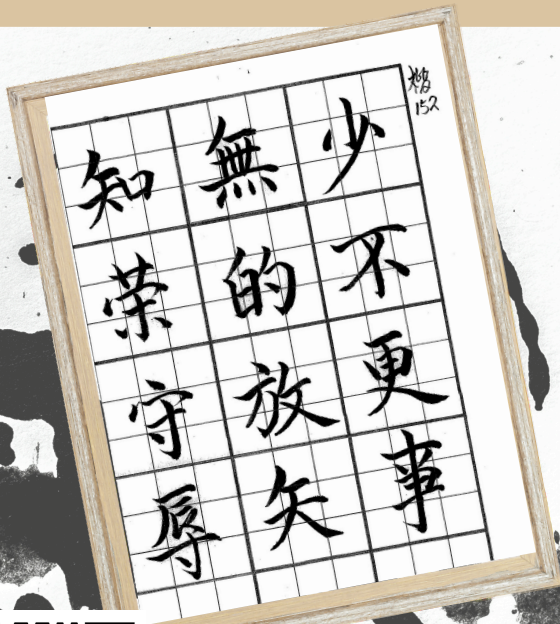 152
少不更事
無的放矢
知荣守辱